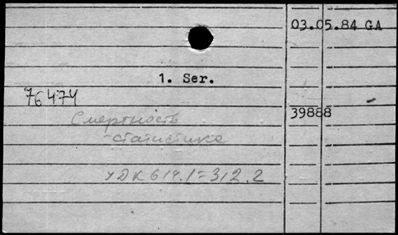 03.05.84 GA
1. Ser.
76474
39888
Смертность
-статистика
УДК 614.1=312.2